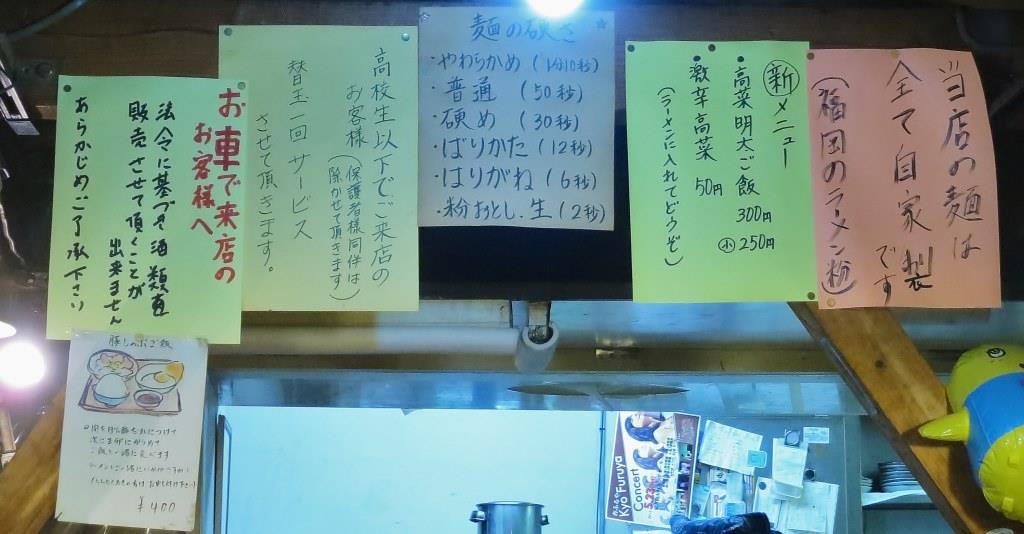 当店の麺は
全て自家製
です
(福岡のラーメン粉)
新メニュー
・高菜明太ご飯
300円
小 250円
・激辛高菜 50円
(ラーメンに入れてどうぞ)
麺の硬さ
・やわらかめ (1分10秒)
・普通 (50秒)
・硬め (30秒)
・ばりかた (12秒)
・はりがね (6秒)
・粉おとし、生 (2秒)
高校生以下でご来店の
お客様 (保護者様同伴は
除かせて頂きます)
替玉一回サービス
させて頂きます。
お車で来店の
お客様へ
法令に基づき酒類を
販売させて頂くことが
出来ません
あらかじめご了承下さい
¥400
Kyo Furuya
Concert